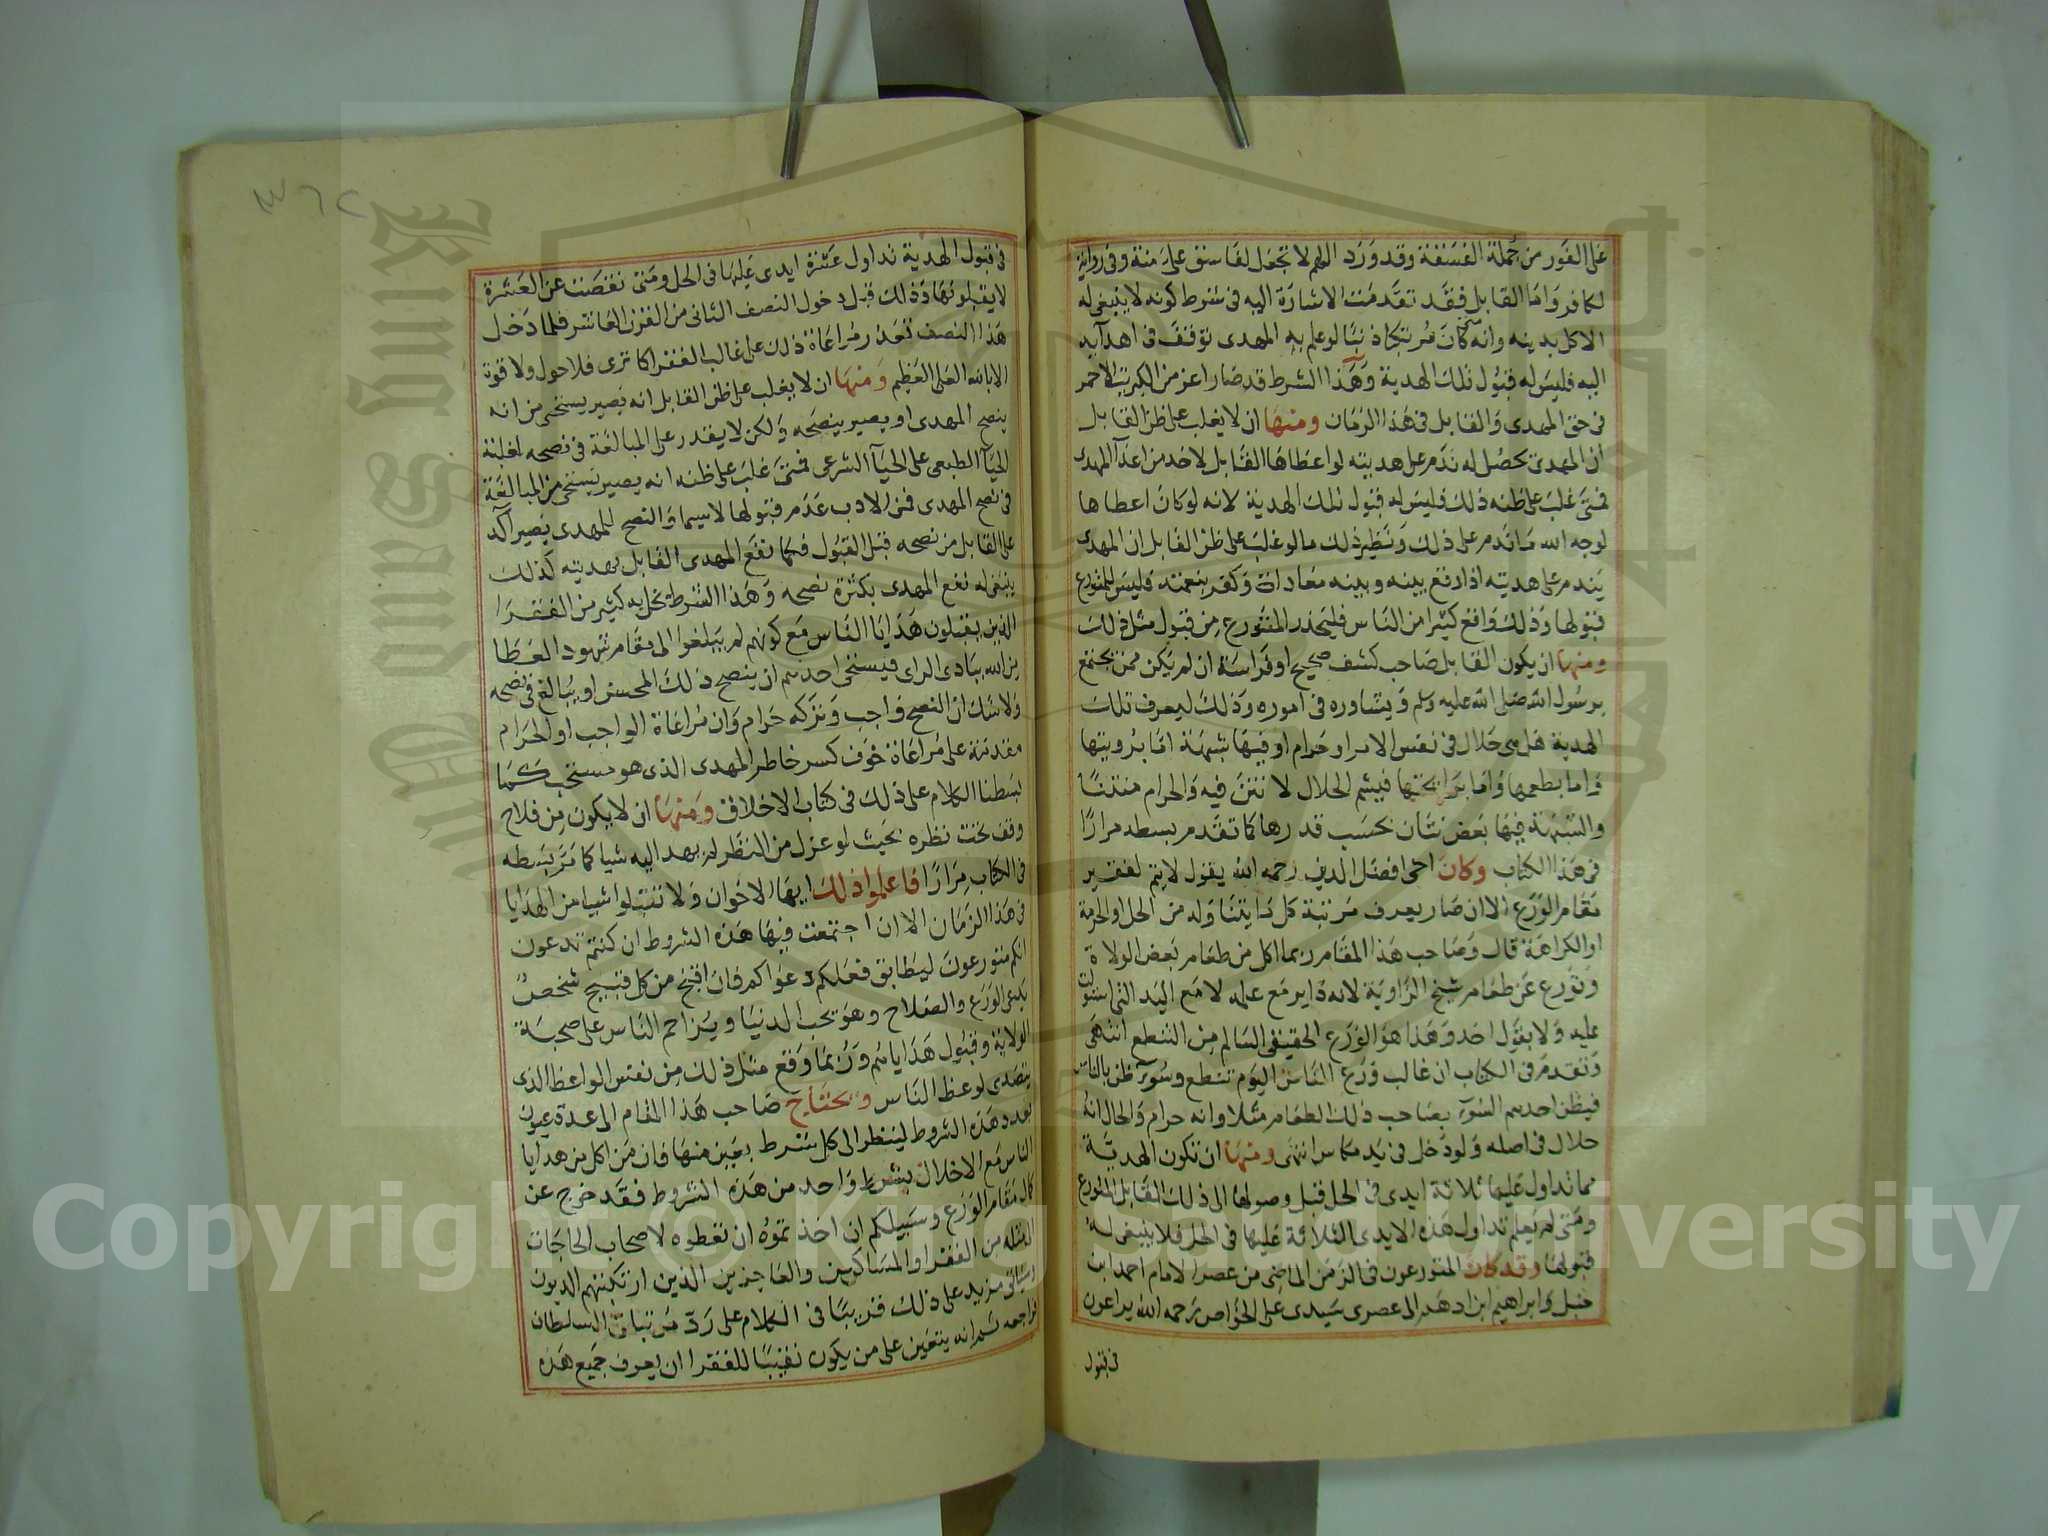 على الفور من جملة الفسقة وقد ورد اللهم لا تجعل لفاسق على منة وفى رواية
لكافر واما القابل فقد تقدمت الاشارة اليه فى شروط كونه لا ينبغى له
الاكل بدينه وانه كان مرتكبا ذنبا لو علم به المهدى توقف فى اهدايه
اليه فليس له قبول تلك الهدية وهذا الشرط قد صار اعز من الكبريت الاحمر
فى حق المهدى والقابل فى هذا الزمان ومنها ان لا يغلب على ظن القابل
ان المهدى يحصل له ندم على هديته لو اعطاها القابل لاحد من اعدآ المهدى
فمتى غلب على ظنه ذلك فليس له قبول تلك الهدية لانه لو كان اعطاها
لوجه الله ما ندم على ذلك ونظير ذلك ما لو غلب على ظن القابل ان المهدى
يندم على هديته اذا وقع بينه وبينه معاداة وكفر بنعمته فليس للمتورع
قبولها وذلك واقع كثيرا من الناس فليحذر المتورع من قبول مثل ذلك
ومنها ان يكون القابل صاحب كشف صحيح او فراسة ان لم يكن ممن يجتمع
برسول الله صلى الله عليه وسلم ويشاوره فى اموره وذلك ليعرف تلك
الهدية هل هى حلال فى نفس الامر او حرام او فيها شبهة اما برويتها
واما بطعمها واما برائحتها فيشم الحلال لا نتن فيه والحرام منتنا
والشبهة فيها بعض نتن بحسب قدرها كما تقدم بسطه مرارا
فى هذا الكتاب وكان اخى افضل الدين رحمه الله يقول لا يتم لفقير
مقام الورع الا ان صار يعرف مرتبة كل ما يتناوله من الحل والحرمة
او الكراهة قال وصاحب هذا المقام ربما اكل من طعام بعض الولاة
وتورع عن طعام شيخ الزاوية لانه داير مع علمه لا مع اليد التى استولت
عليه ولا بقول احد وهذا هو الورع الحقيقى السالم من التنطع انتهى
وتقدم فى الكتاب ان غالب ورع الناس اليوم تنطع وسوء ظن بالناس
فيظن احدهم السوء بصاحب ذلك الطعام مثلا وانه حرام والحال انه
حلال فى اصله ولو دخل فى يد مكاس انتهى ومنها ان تكون الهدية
مما تداول عليها ثلاثة ايدى فى الحل قبل وصولها الى ذلك القابل المتورع
ومتى لم يعلم تداول هذه الايدى الثلاثة عليها فى الحل فلا ينبغى له
قبولها وقد كان المتورعون فى الزمن الماضى من عصر الامام احمد ابن
حنبل وابراهيم ابن ادهم الى عصرى سيدى على الخواص رحمه الله يراعون
فى قبول
٣٦٢
فى قبول الهدية تداول عشرة ايدى عليها فى الحل ومتى نقصت عن العشرة
لا يقبلونها وذلك قبل دخول النصف الثانى من القرن العاشر فلما دخل
هذا النصف تعذر مراعاة ذلك على غالب الفقرا كما ترى فلا حول ولا قوة
الا بالله العلى العظيم ومنها ان لا يغلب على ظن القابل انه يصير يستحى من انه
ينصح المهدى او يصير ينصحه ولكن لا يقدر على المبالغة فى نصحه لغلبة
الحيآ الطبعى على الحيآ الشرعى فمتى غلب على ظنه انه يصير يستحى من المبالغة
فى نصح المهدى فمن الادب عدم قبولها لاسيما والنصح للمهدى يصير آكد
على القابل من نصحه قبل القبول فكما نفع المهدى القابل بهديته كذلك
ينبغى له نفع المهدى بكثرة نصحه وهذا الشرط يخل به كثير من الفقرا
الذين يقبلون هدايا الناس مع كونهم لم يبلغوا الى مقام شهود العطا
من الله ببادى الراى فيستحى احدهم ان ينصح ذلك المحسن او يبالغ فى نصحه
ولا شك ان النصح واجب وتركه حرام وان مراعاة الواجب او الحرام
مقدمة على مراعاة خوف كسر خاطر المهدى الذى هو مستحب كما
بسطنا الكلام على ذلك فى كتاب الاخلاق ومنها ان لا يكون من فلاح
وقف تحت نظره بحيث لو عزل من النظر لم يهد اليه شيا كما مر بسطه
فى الكتاب مرارا فاعلموا ذلك ايها الاخوان ولا تقبلوا شيا من الهدايا
فى هذا الزمان الا ان اجتمعت فيها هذه الشروط ان كنتم تدعون
انكم متورعون ليطابق فعلكم دعواكم فان اقبح من كل قبيح شخص
يدعى الورع والصلاح وهو يحب الدنيا ويزاحم الناس على صحبة
الولاة وقبول هداياهم وربما وقع مثل ذلك من نفس الواعظ الذى
يتصدى لوعظ الناس ويحتاج صاحب هذا المقام الى عدة عيون
بعدد هذه الشروط لينظر الى كل شرط بعين منها فان من اكل من هدايا
الناس مع الاخلال بشرط واحد من هذه الشروط فقد خرج عن
كمال مقام الورع وسبيلكم ان اخذتموه ان تعطوه لاصحاب الحاجات
من الفقرا والمساكين والعاجزين الذين ارتكبتهم الديون
وسياتى مزيد على ذلك قريبا فى الكلام على رد مرتبات السلطان
فراجعه ثم انه يتعين على من يكون نقيبا للفقرا ان يعرف جميع هذه
Copyright © King Saud University
King Saud University